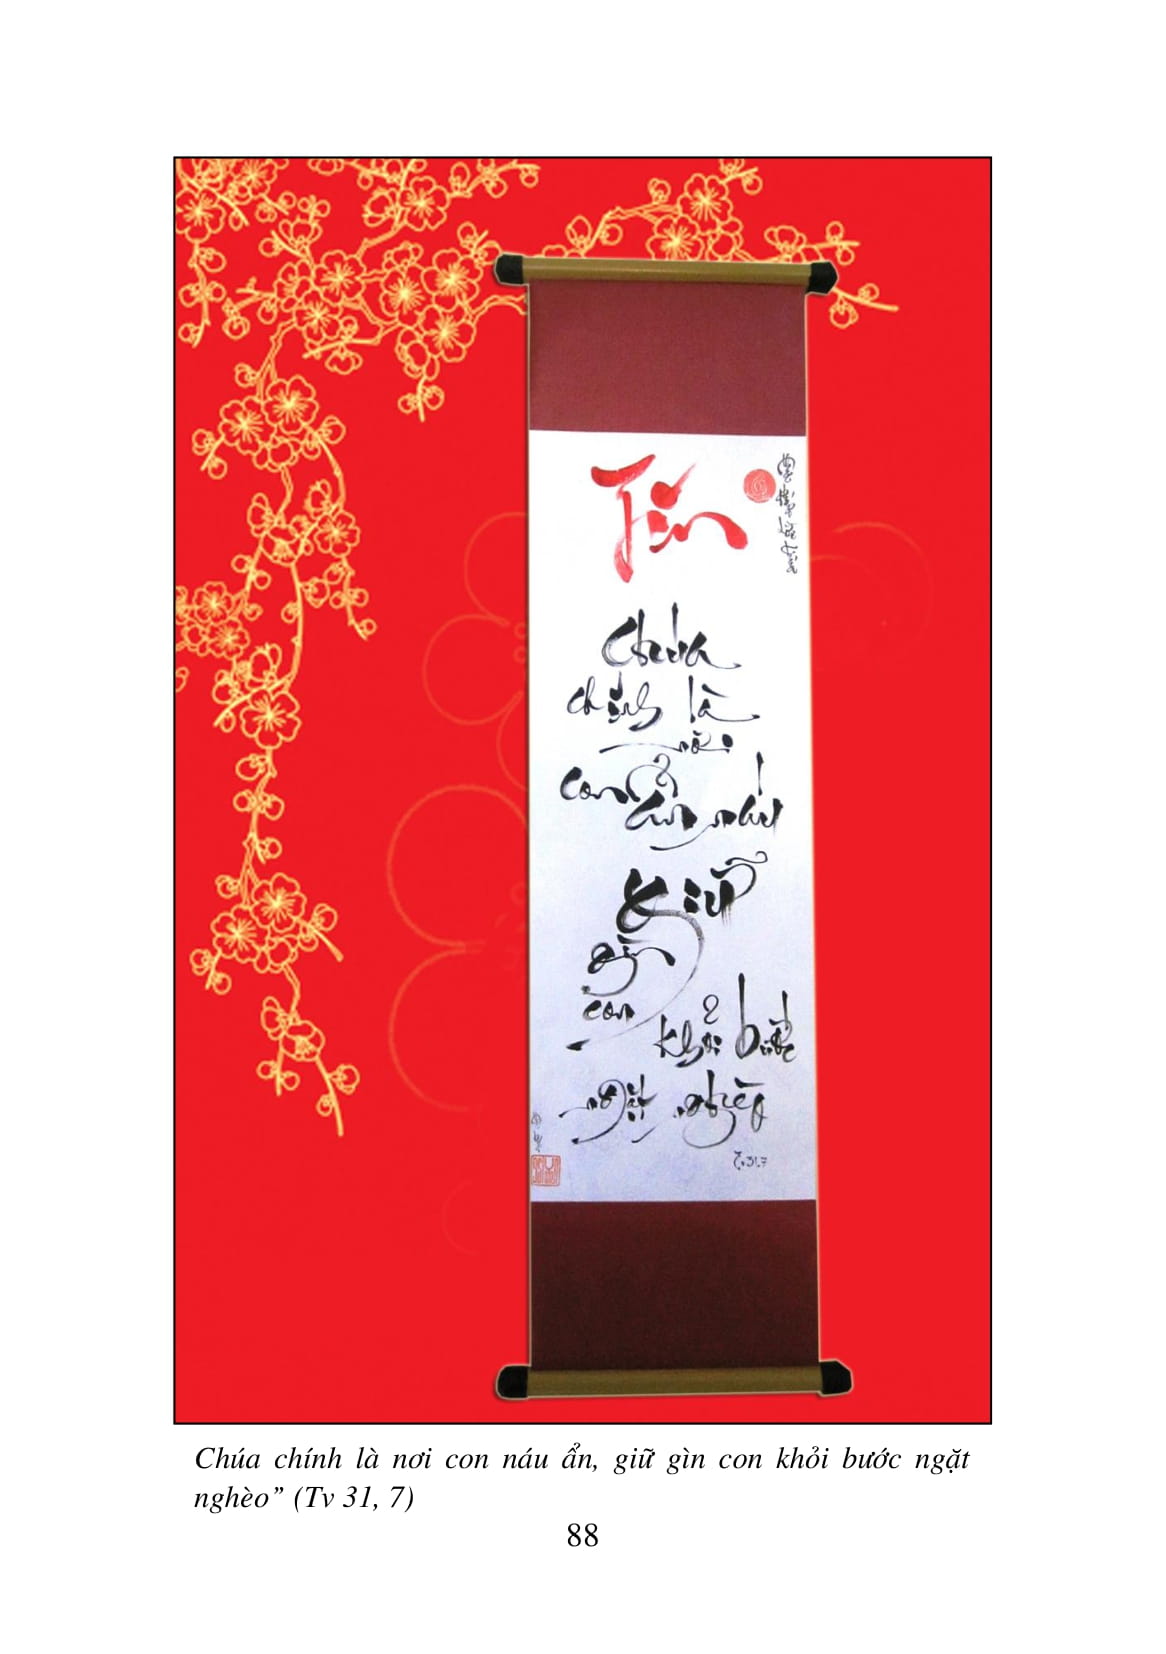 Tín
Chúa
chính là
nơi
con ẩn náu
giữ
gìn
con
khỏi bước
ngặt nghèo
Tv 31,7
Chúa chính là nơi con náu ẩn, giữ gìn con khỏi bước ngặt
nghèo” (Tv 31, 7)
88